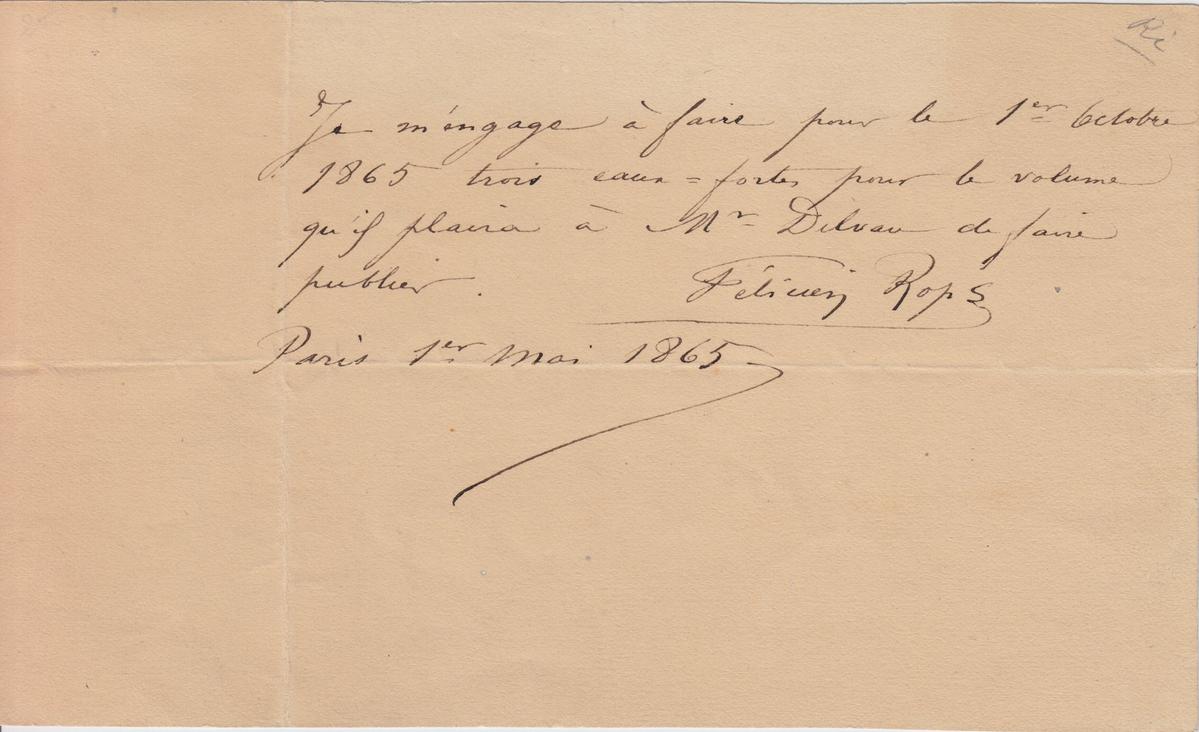 Je m'engage à faire pour le 1er Octobre
1865 trois eaux=fortes pour le volume
qu'il plaira à Mr Delvau de faire
publier.
Félicien Rops
Paris 1er Mai 1865